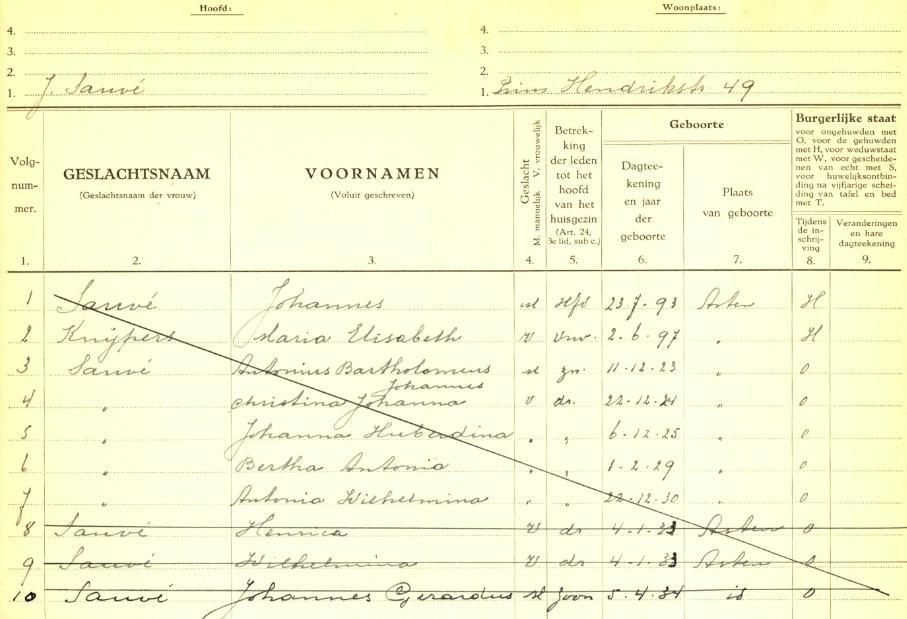 Hoofd: Woonplaats:
4. 4.
3. 3.
2. 2.
1. J. Sauvé 1. Prins Hendrikstr. 49
Volg-
num-
mer.
1.
GESLACHTSNAAM
(Geslachtsnaam der vrouw)
2.
VOORNAMEN
(Voluit geschreven)
3.
Geslacht
M. mannelijk V. vrouwelijk
4.
Betrek-
king
der leden
tot het
hoofd
van het
huisgezin
(Art. 24,
3e lid, sub c.)
5.
Geboorte
Dagtee-
kening
en jaar
der
geboorte
6.
Plaats
van geboorte
7.
Burgerlijke staat
voor ongehuwden met
O, voor de gehuwden
met H, voor weduwstaat
met W, voor gescheide-
nen van echt met S,
voor huwelijksontbin-
ding na vijfjarige schei-
ding van tafel en bed
met T.
Tijdens
de in-
schrij-
ving
8.
Veranderingen
en hare
dagteekening
9.
1 Sauvé Johannes M Hfd 23.7.93 Asten H
2 Knijpers Maria Elisabeth V Vrw. 2.6.97 " H
3 Sauvé Antonius Bartholomeus M zn. 11.12.23 " O
Johannes
4 " Christina Johanna V dr. 22.12.24 " O
5 " Johanna Huberdina " " 6.12.25 " O
6 " Bertha Antonia " " 1.2.29 " O
7 " Antonia Wilhelmina " " 22.12.30 " O
8 Sauvé Henrica V dr 4.1.33 Asten O
9 Sauvé Wilhelmina V dr 4.1.33 Asten O
10 Sauvé Johannes Gerardus M zoon 5.4.34 id O